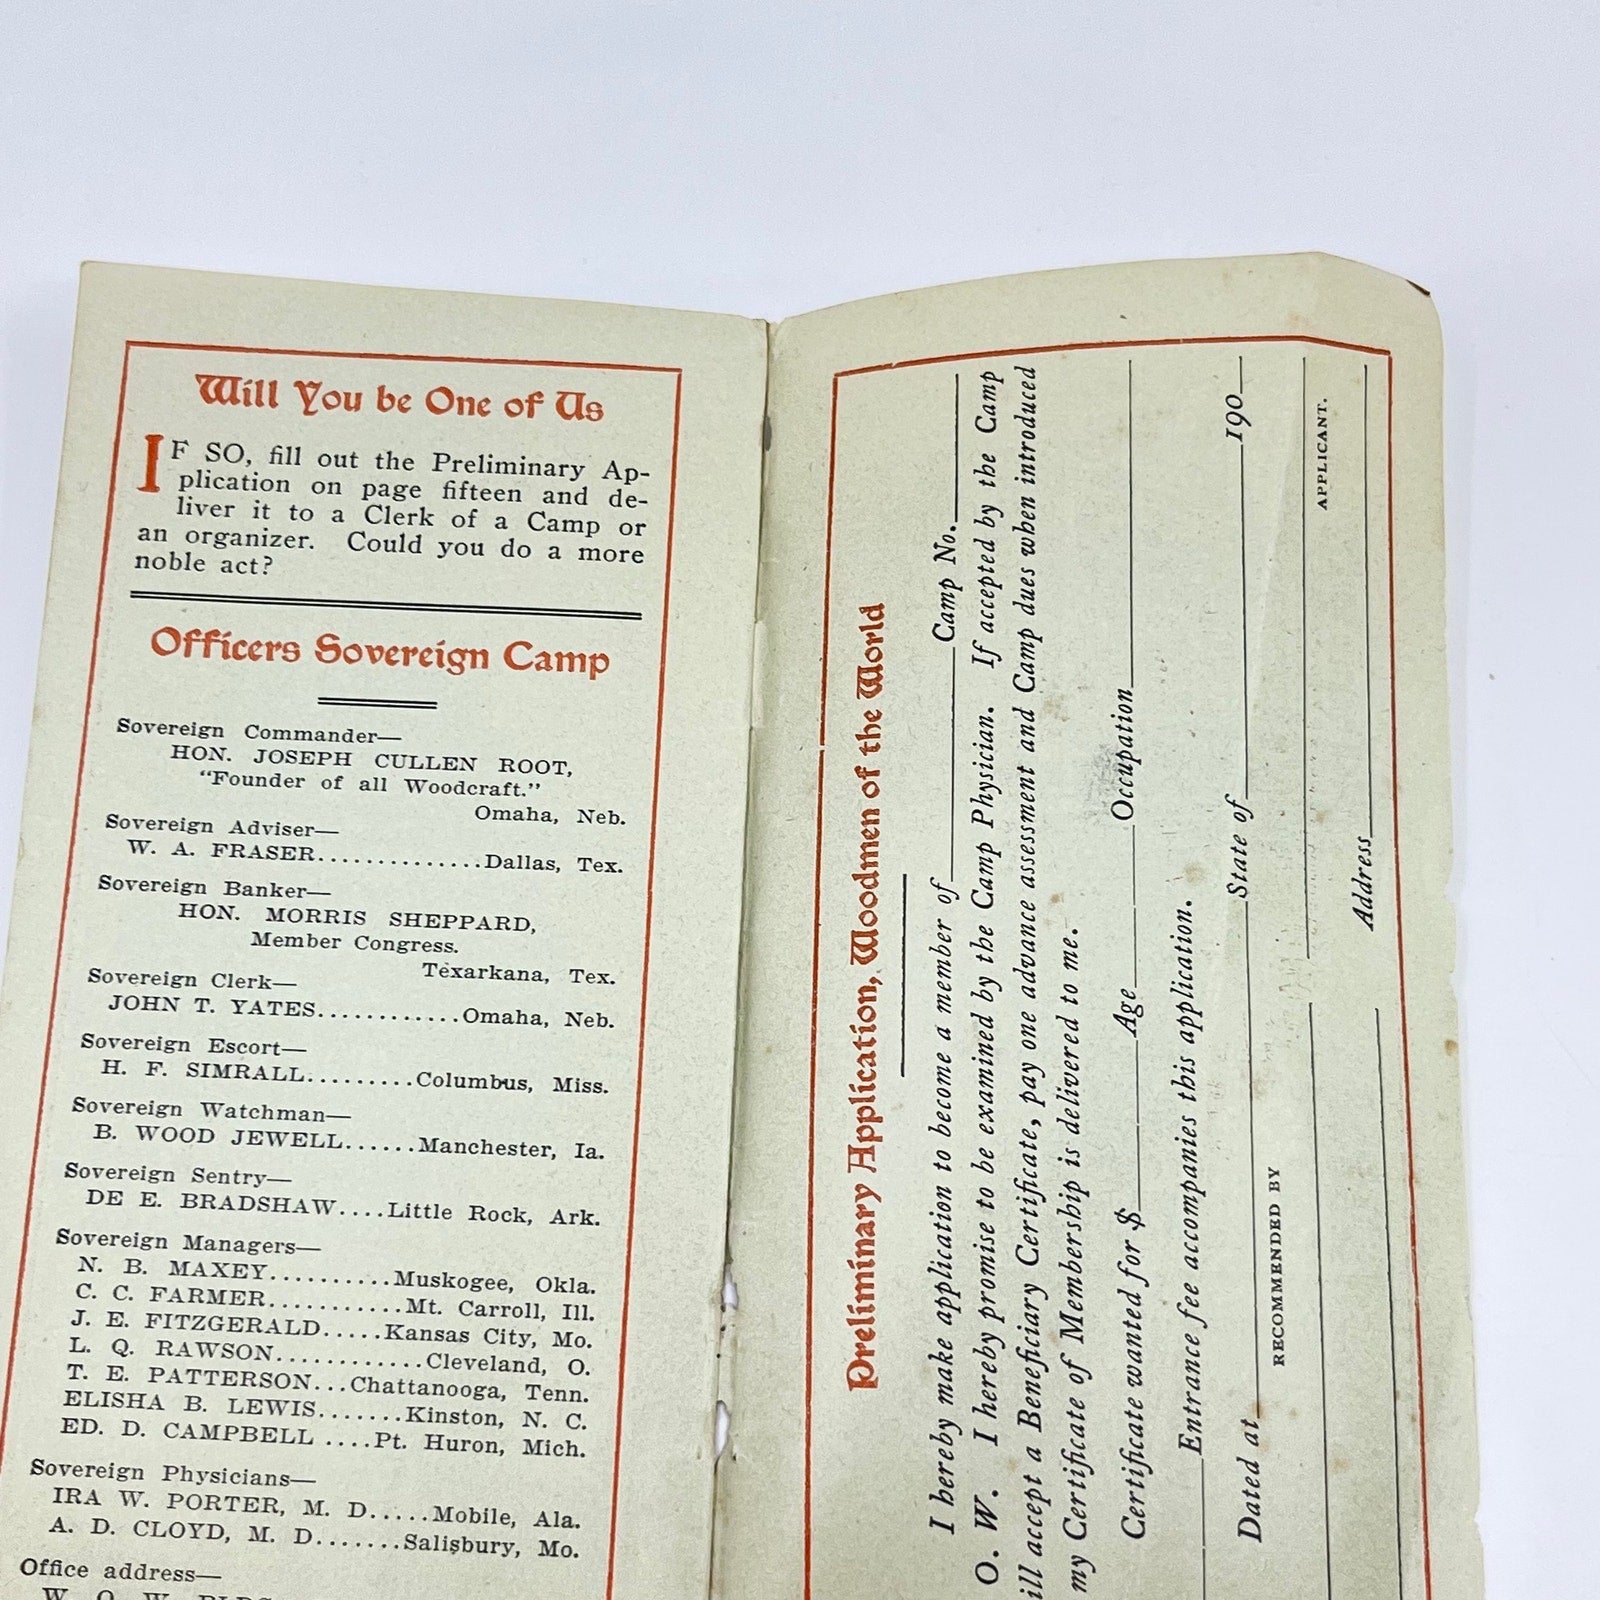 Will You be One of Us
IF SO, fill out the Preliminary Ap-
plication on page fifteen and de-
liver it to a Clerk of a Camp or
an organizer. Could you do a more
noble act?
Officers Sovereign Camp
Sovereign Commander—
HON. JOSEPH CULLEN ROOT,
"Founder of all Woodcraft."
Omaha, Neb.
Sovereign Adviser—
W. A. FRASER..............Dallas, Tex.
Sovereign Banker—
HON. MORRIS SHEPPARD,
Member Congress.
Texarkana, Tex.
Sovereign Clerk—
JOHN T. YATES............Omaha, Neb.
Sovereign Escort—
H. F. SIMRALL.........Columbus, Miss.
Sovereign Watchman—
B. WOOD JEWELL......Manchester, Ia.
Sovereign Sentry—
DE E. BRADSHAW....Little Rock, Ark.
Sovereign Managers—
N. B. MAXEY..........Muskogee, Okla.
C. C. FARMER...........Mt. Carroll, Ill.
J. E. FITZGERALD.....Kansas City, Mo.
L. Q. RAWSON............Cleveland, O.
T. E. PATTERSON...Chattanooga, Tenn.
ELISHA B. LEWIS.......Kinston, N. C.
ED. D. CAMPBELL ....Pt. Huron, Mich.
Sovereign Physicians—
IRA W. PORTER, M. D.....Mobile, Ala.
A. D. CLOYD, M. D.......Salisbury, Mo.
Office address—
W. O. W.
Preliminary Application, Woodmen of the World
I hereby make application to become a member of Camp No.
O. W. I hereby promise to be examined by the Camp Physician. If accepted by the Camp
ill accept a Beneficiary Certificate, pay one advance assessment and Camp dues when introduced
my Certificate of Membership is delivered to me.
Certificate wanted for $ Age Occupation
Entrance fee accompanies this application.
Dated at State of 190
RECOMMENDED BY
APPLICANT.
Address